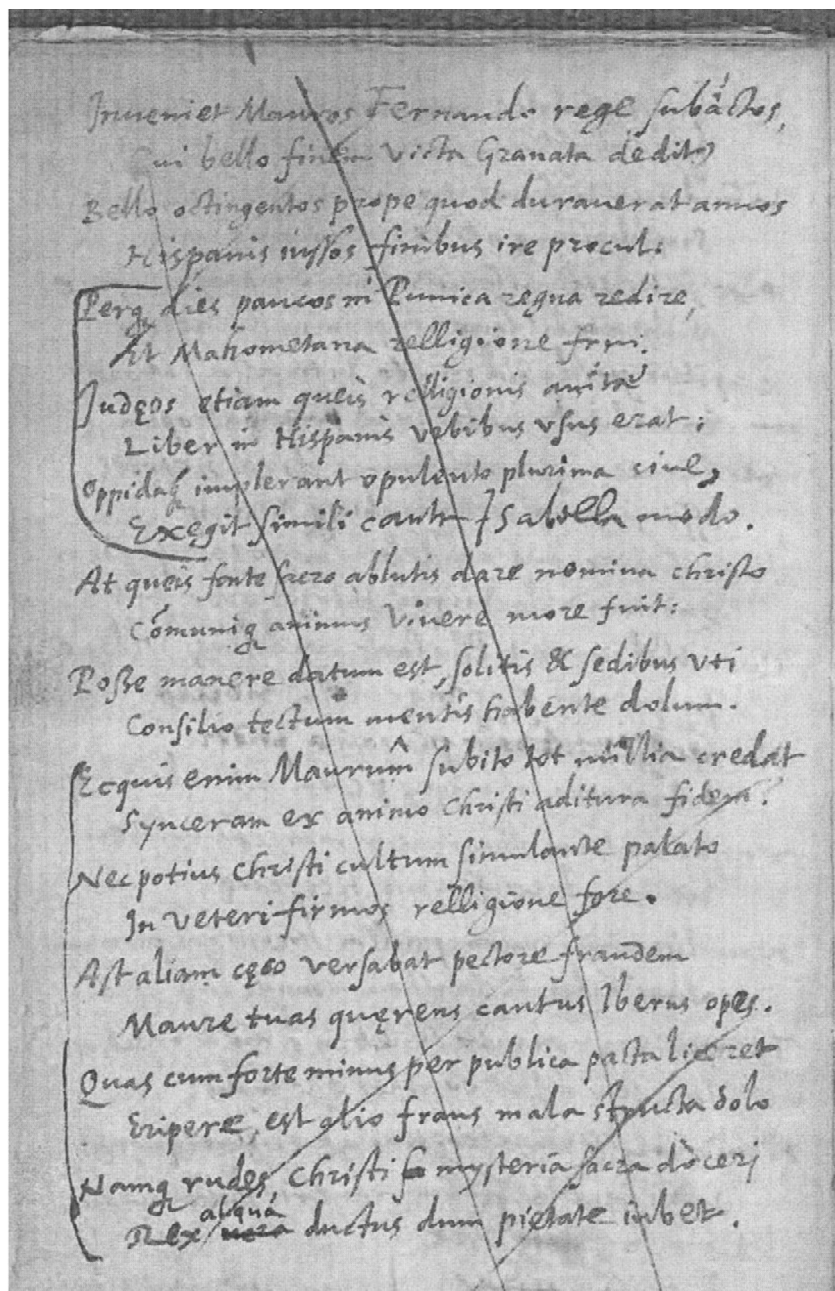 Inueniet Mauros Fernando rege subactos,
Cui bello finem victa Granata dedit
Bello octingentos prope quod durauerat annos
Hispanis iussos finibus ire procul:
Perq dies paucos in Punica regna redire,
Et Mahometana relligione frui.
Judęos etiam queis relligionis auitae
Liber in Hispanis vrbibus vsus erat:
Oppidaq implerant opulento plurima ciue,
Exęgit simili caute Isabella modo.
At queis fonte sacro ablutis dare nomina Christo
Cōmuniq animus viuere more fuit:
Posse manere datum est, solitis & sedibus vti
Consilio tectum mentis habente dolum.
Ecquis enim Maurum subito tot millia credat
Synceram ex animo Christi aditura fidem?
Nec potius Christi cultum simulante palato
In veteri firmos relligione fore.
Ast aliam cęco versabat pectore fraudem
Maure tuas quęrens cautus Iberus opes.
Quas cum forte minus per publica pacta liceret
Eripere, est alio fraus mala structa dolo
Namq rudes Christi mysteria sacra doceri
aliqua
Rex vera ductus dum pietate iubet.